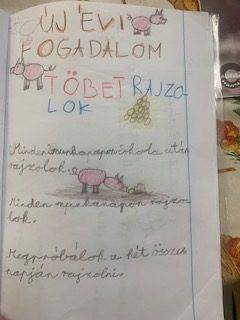 ÚJ ÉVI
FOGADALOM
TÖBET RAJZO-
LOK
Minden munkanapon iskola után
rajzolok.
Minden munkanapon rajzo-
lok.
Megpróbálok a hét összes
napján rajzolni.